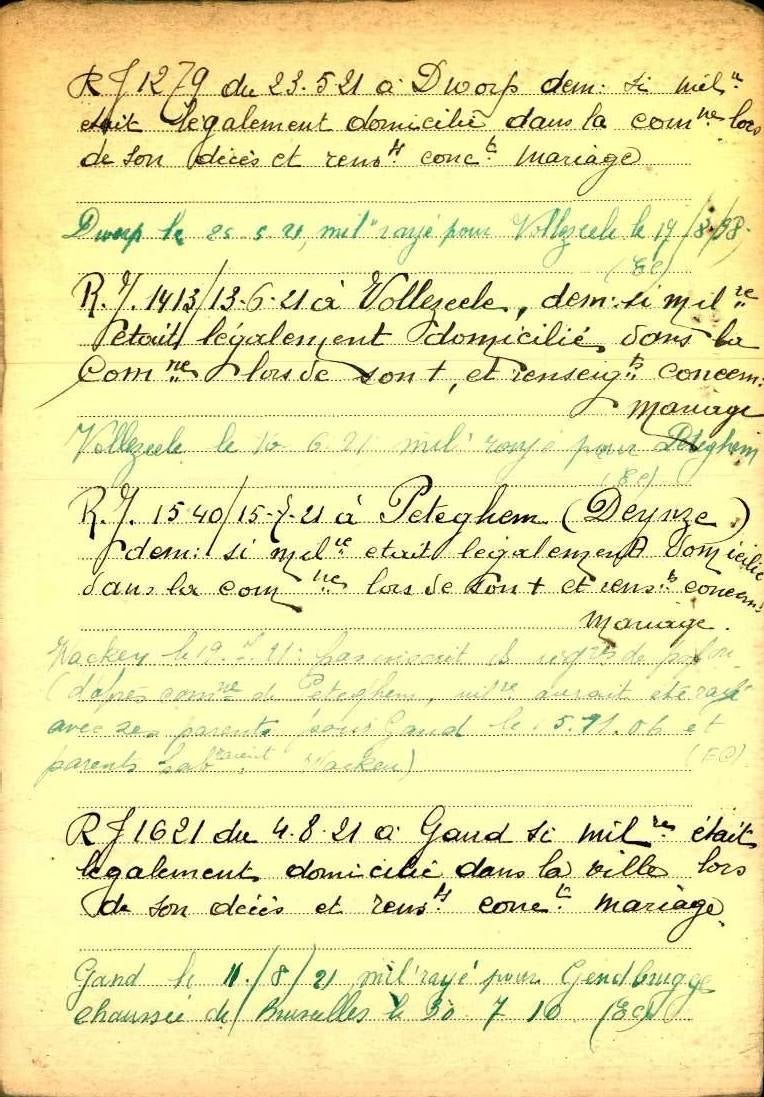 RJ 1279 du 23.5.21 à Dworp dem: si mil.re
était légalement domicilié dans la com.ne lors
de son décès et rens.ts conc.t mariage
Dworp le 25 5 21, mil.re rayé pour Vollezeele le 19/8/98.
(EC)
R.J. 1413/13-6-21 à Vollezeele, dem: si mil.re
était légalement domicilié dans la
Com.ne lors de son +, et renseig.ts concern:
mariage
Vollezeele le 6.21 mil.re rayé pour Peteghem
(EC)
R.J. 1540/15-7-21 à Peteghem (Deynze)
dem: si mil.re etait légalement domicilié
dans la com.ne lors de son + et rens.ts concern:
mariage.
Wacken le 19 21: pas inscrit
(d'après com.ne de Peteghem, mil.re aurait été rayé
avec ses parents pour Gand le 5.11.06 et
parents Wacken) (EC)
RJ 1621 du 4.8.21 à Gand si mil.re était
légalement domicilié dans la ville lors
de son décès et rens.ts conc.t mariage
Gand le 11/8/21 mil.re rayé pour Gendbrugge
chaussée de Bruxelles le 30 7 10 (EC)